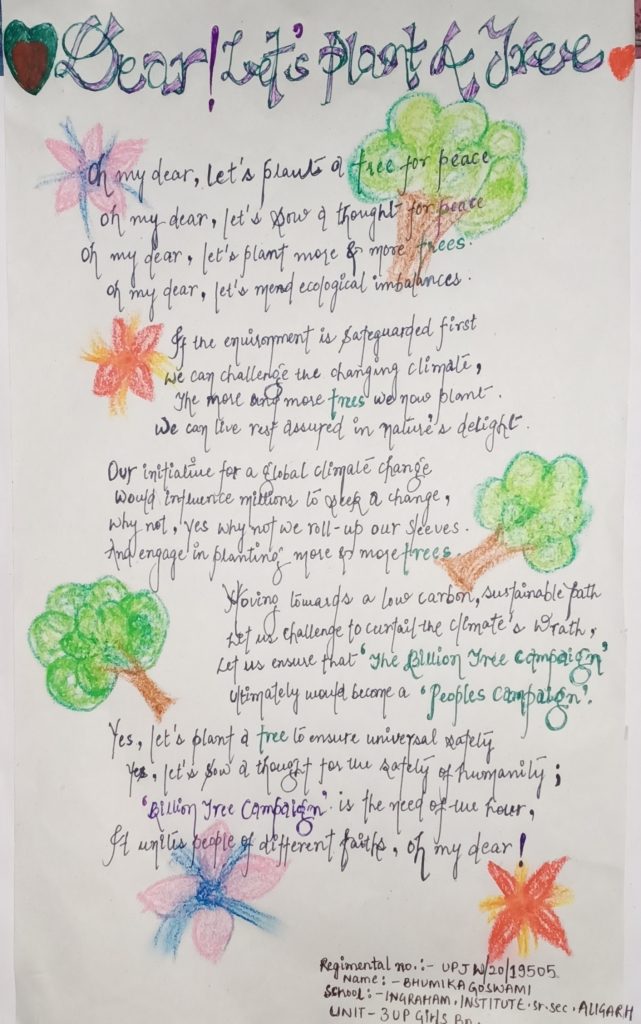 Dear! Let's Plant A Tree
Oh my dear, let's plant a tree for peace
Oh my dear, let's sow a thought for peace
Oh my dear, let's plant more & more trees.
Oh my dear, let's mend ecological imbalances.
If the environment is safeguarded first
We can challenge the changing climate,
The more and more trees we now plant.
We can live rest assured in nature's delight.
Our initiative for a global climate change
Would influence millions to seek a change,
Why not, yes why not we roll-up our sleeves.
And engage in planting more & more trees.
Moving towards a low carbon, sustainable path
Let us challenge to curtail the climate's wrath,
Let us ensure that 'The Billion Tree Campaign'
Ultimately would become a 'Peoples Campaign'.
Yes, let's plant a tree to ensure universal safety
Yes, let's sow a thought for the safety of humanity;
'Billion Tree Campaign' is the need of the hour,
It unites people of different faiths, oh my dear!
Regimental no.:- UPJW/20/19505
Name:- BHUMIKA GOSWAMI
School:- INGRAHAM. INSTITUTE. Sr. sec. ALIGARH
UNIT- 3 UP Girls Bn.